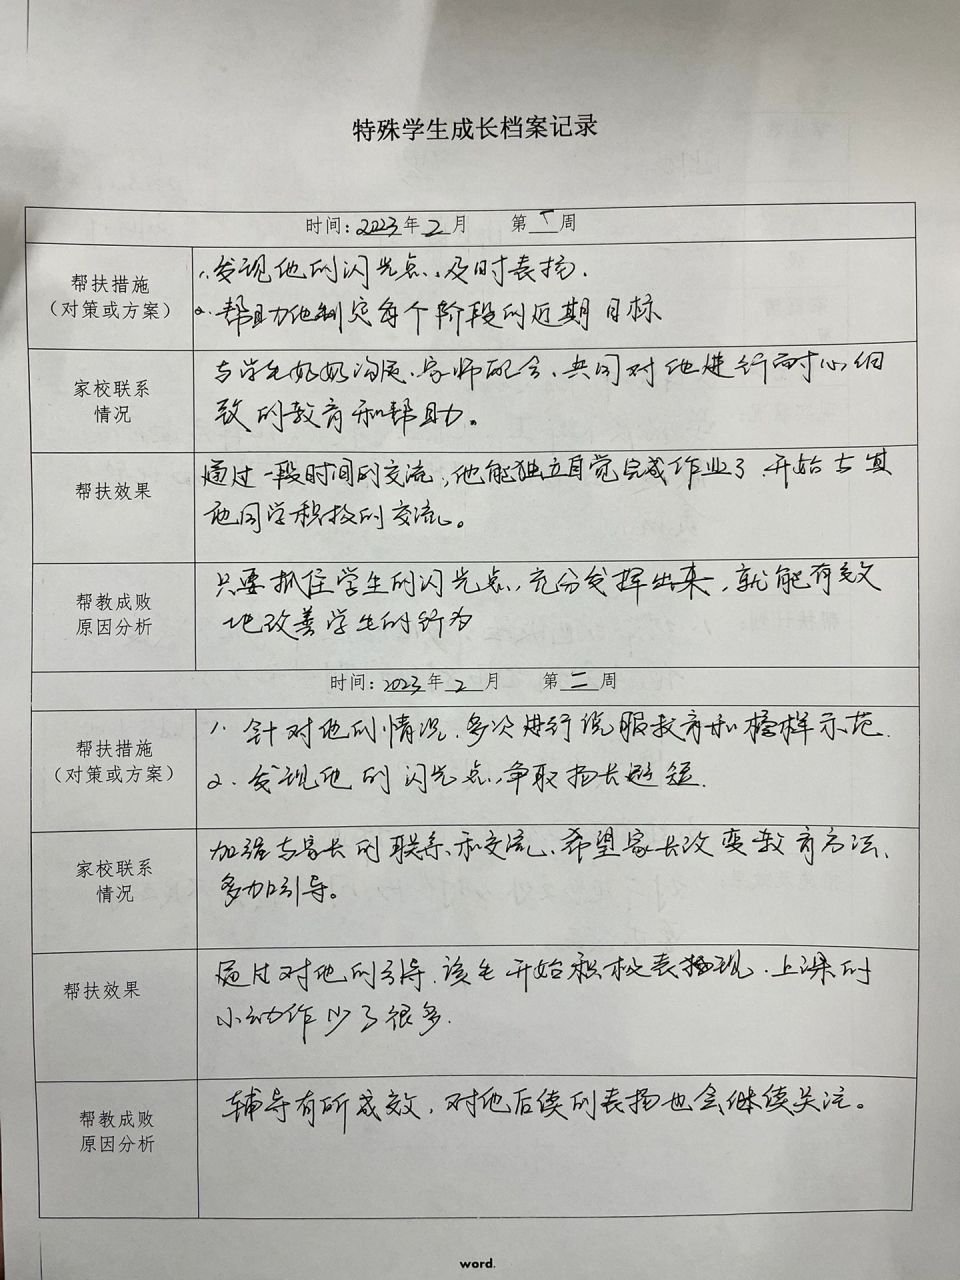 特殊学生成长档案记录
时间:2023年2月 第一周
帮扶措施
(对策或方案)
1.发现他的闪光点,及时表扬.
2.帮助他制定每个阶段的近期目标
家校联系
情况
与学生好好沟通,家师配合,共同对他进行耐心细
致的教育和帮助。
帮扶效果
通过一段时间的交流,他能独立自觉完成作业了,开始与其
他同学积极的交流。
帮教成败
原因分析
只要抓住学生的闪光点,充分发挥出来,就能有效
地改善学生的行为
时间:2023年2月 第二周
帮扶措施
(对策或方案)
1.针对他的情况,多次进行说服教育和榜样示范.
2.发现他的闪光点,争取扬长避短.
家校联系
情况
加强与家长的联系和交流,希望家长改变教育方法,
多加引导。
帮扶效果
通过对他的引导,该生开始积极表现,上课的
小动作少了很多.
帮教成败
原因分析
辅导有所成效,对他后续的表扬也会继续关注。
word.